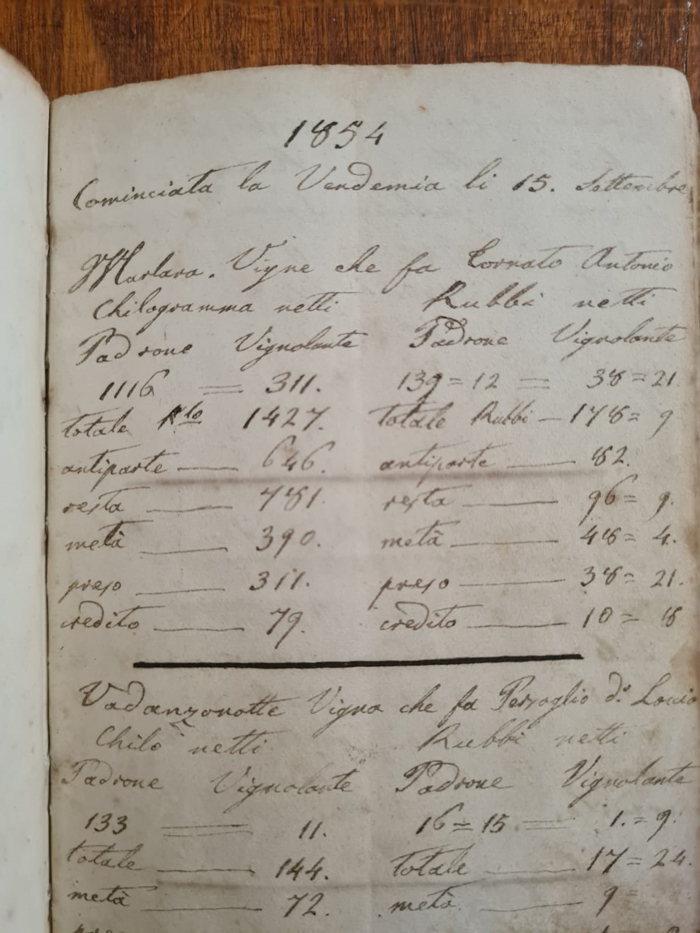 1854
Cominciata la Vendemia li 15. Settembre
Marlara. Vigne che fa Cornato Antonio
Chilogramma netti Rubbi netti
Padrone Vignolante Padrone Vignolante
1116 = 311. 139 = 12 = 38 = 21
totale Klo 1427. totale Rubbi — 178 = 9
antiparte — 646. antiparte — 82.
resta — 781. resta — 96 = 9.
metà — 390. metà — 48 = 4.
preso — 311. preso — 38 = 21.
credito — 79. credito — 10 = 8
Vadanzonotte Vigna che fa d.o
Chilo netti Rubbi netti
Padrone Vignolante Padrone Vignolante
133 = 11. 16 = 15 = 1. = 9.
totale — 144. totale — 17 = 24.
metà — 72. metà — 9 =